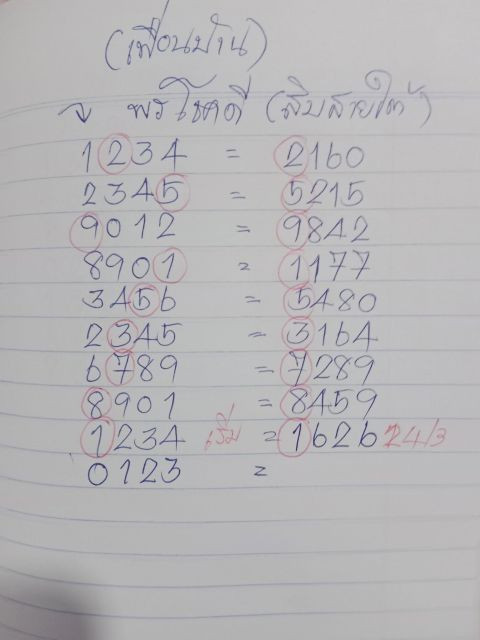 (เพื่อนบ้าน)
จ พรโชคดี (สิบสายใต้)
1234 = 2160
2345 = 5215
9012 = 9842
8901 = 1177
3456 = 5480
2345 = 3164
6789 = 7289
8901 = 8459
1234 เริ่ม = 1626 24/3
0123 =